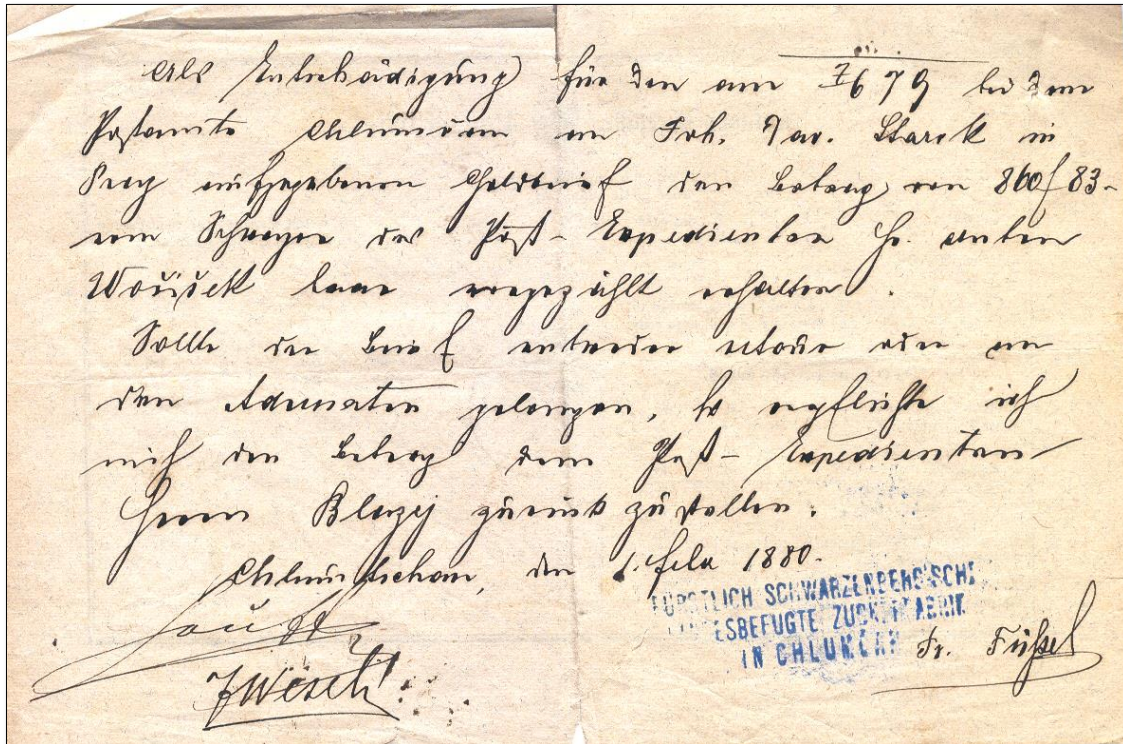 Als Entschädigung für den am 7/6 79 bei dem
Postamte Chlumčan an Joh. Dav. Starck in
Prag aufgegebenen Geldbrief den Betrag von 860 f 83-
vom Schwager des Post-Expedienten H. Anton
baar vorgezählt erhalten.
Sollte der Brief entweder retour oder an
den Adressaten gelangen, so verpflichte ich
mich den Betrag dem Post-Expedienten
Herrn Blazej zurück zu stellen.
Chlumtschan, den 1. Feber 1880.
FÜRSTLICH SCHWARZENBERG'SCHE
LANDESBEFUGTE ZUCKERFABRIK
IN CHLUMČAN
Fr. Füssel